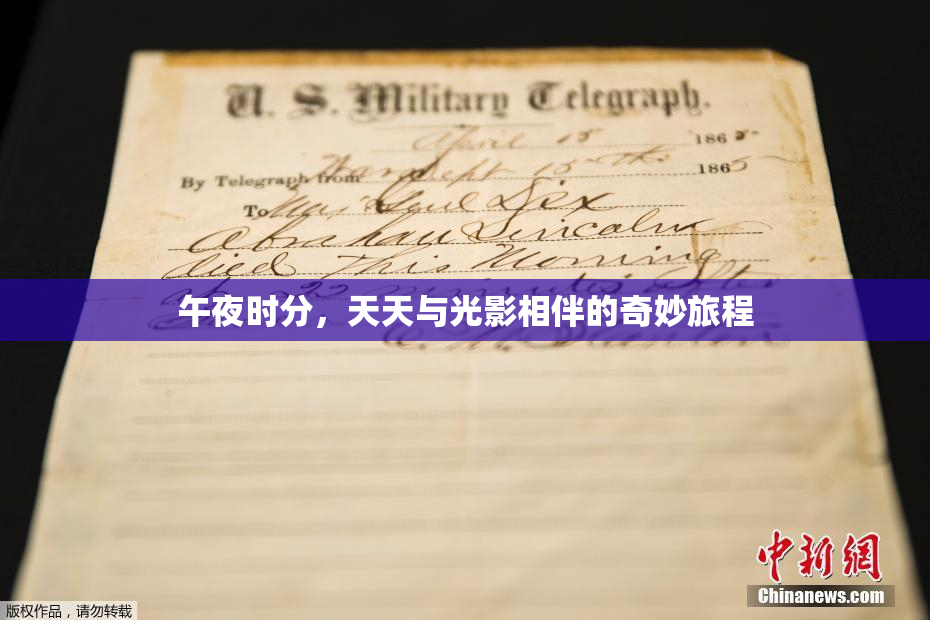 U. S. Military Telegraph.
April 15 1865
By Telegraph from War Dept 15th 1865
To Maj Genl Dix
Abraham Lincoln
died This Morning
22 minutes after
午夜时分，天天与光影相伴的奇妙旅程
E. M. Stanton
中新網
Chinanews.com
版权作品，请勿转载